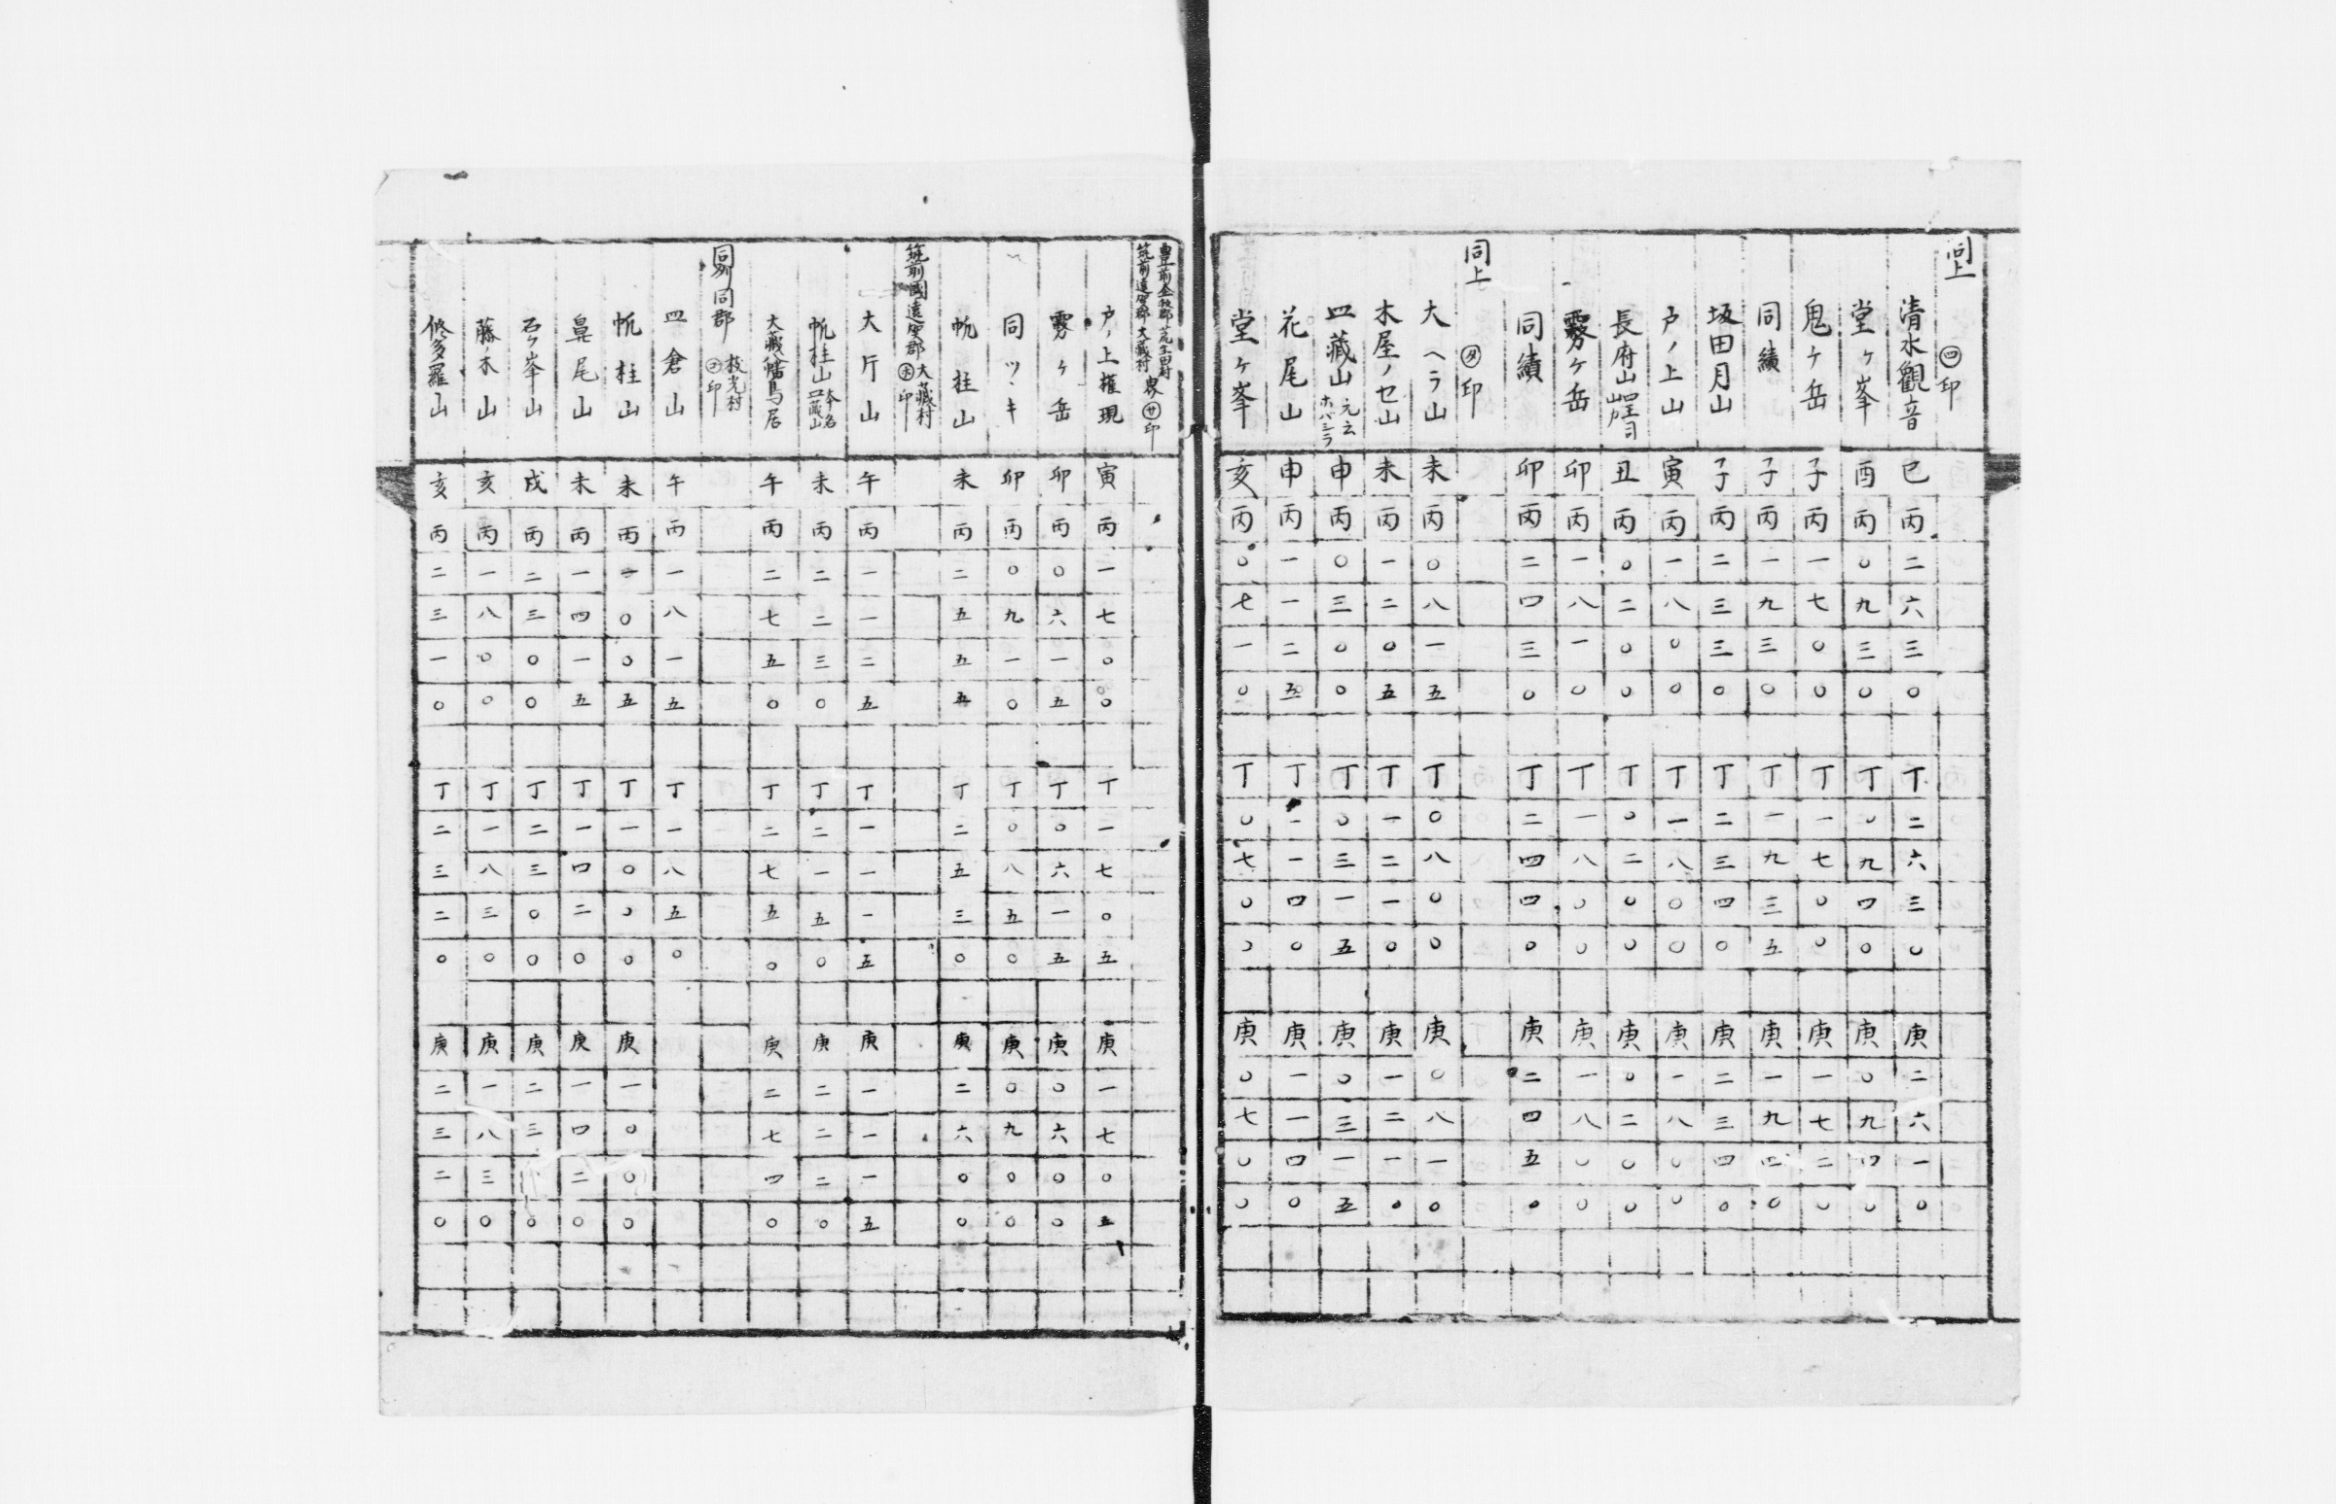 同上 ㊃印
清水觀音 巳 丙 二 六 三 〇 丁 二 六 三 〇 庚 二 六 一 〇
堂ヶ峯 酉 丙 〇 九 三 〇 丁 〇 九 四 〇 庚 〇 九 四 〇
鬼ヶ岳 子 丙 一 七 〇 〇 丁 一 七 〇 〇 庚 一 七 二 〇
同續 子 丙 一 九 三 〇 丁 一 九 三 五 庚 一 九 四 〇
坂田月山 子 丙 二 三 三 〇 丁 二 三 四 〇 庚 二 三 四 〇
戸ノ上山 寅 丙 一 八 〇 〇 丁 一 八 〇 〇 庚 一 八 〇 〇
長府山 丑 丙 〇 二 〇 〇 丁 〇 二 〇 〇 庚 〇 二 〇 〇
霧ヶ岳 卯 丙 一 八 一 〇 丁 一 八 〇 〇 庚 一 八 〇 〇
同續 卯 丙 二 四 三 〇 丁 二 四 四 〇 庚 二 四 五 〇
同上 ㋟印
大ヘラ山 未 丙 〇 八 一 五 丁 〇 八 〇 〇 庚 〇 八 一 〇
木屋ノセ山 未 丙 一 二 〇 五 丁 一 二 一 〇 庚 一 二 一 〇
皿藏山 元云ホバシラ 申 丙 〇 三 〇 〇 丁 〇 三 一 五 庚 〇 三 一 五
花尾山 申 丙 一 一 二 五 丁 一 一 四 〇 庚 一 一 四 〇
堂ヶ峯 亥 丙 〇 七 一 〇 丁 〇 七 〇 〇 庚 〇 七 〇 〇
豊前企救郡
筑前遠賀郡 大藏村 界 ㋚印
戸ノ上権現 寅 丙 一 七 〇 〇 丁 一 七 〇 五 庚 一 七 〇 五
霧ヶ岳 卯 丙 〇 六 一 五 丁 〇 六 一 五 庚 〇 六 〇 〇
同ツヽキ 卯 丙 〇 九 一 〇 丁 〇 八 五 〇 庚 〇 九 〇 〇
帆柱山 未 丙 二 五 五 五 丁 二 五 三 〇 庚 二 六 〇 〇
筑前國遠賀郡大藏村 印
大斤山 午 丙 一 一 二 五 丁 一 一 一 五 庚 一 一 一 五
帆柱山 本名皿藏山 未 丙 二 二 三 〇 丁 二 一 五 〇 庚 二 二 二 〇
大藏村幡鳥居 午 丙 二 七 五 〇 丁 二 七 五 〇 庚 二 七 四 〇
同郡 枝光村 ㋔印
皿倉山 午 丙 一 八 一 五 丁 一 八 五 〇
帆柱山 未 丙 一 〇 〇 五 丁 一 〇 〇 〇 庚 一 〇 〇 〇
鼻尾山 未 丙 一 四 一 五 丁 一 四 二 〇 庚 一 四 二 〇
石ヶ峯山 戌 丙 二 三 〇 〇 丁 二 三 〇 〇 庚 二 三 〇
藤ノ木山 亥 丙 一 八 〇 〇 丁 一 八 三 〇 庚 一 八 三 〇
修多羅山 亥 丙 二 三 一 〇 丁 二 三 二 〇 庚 二 三 二 〇